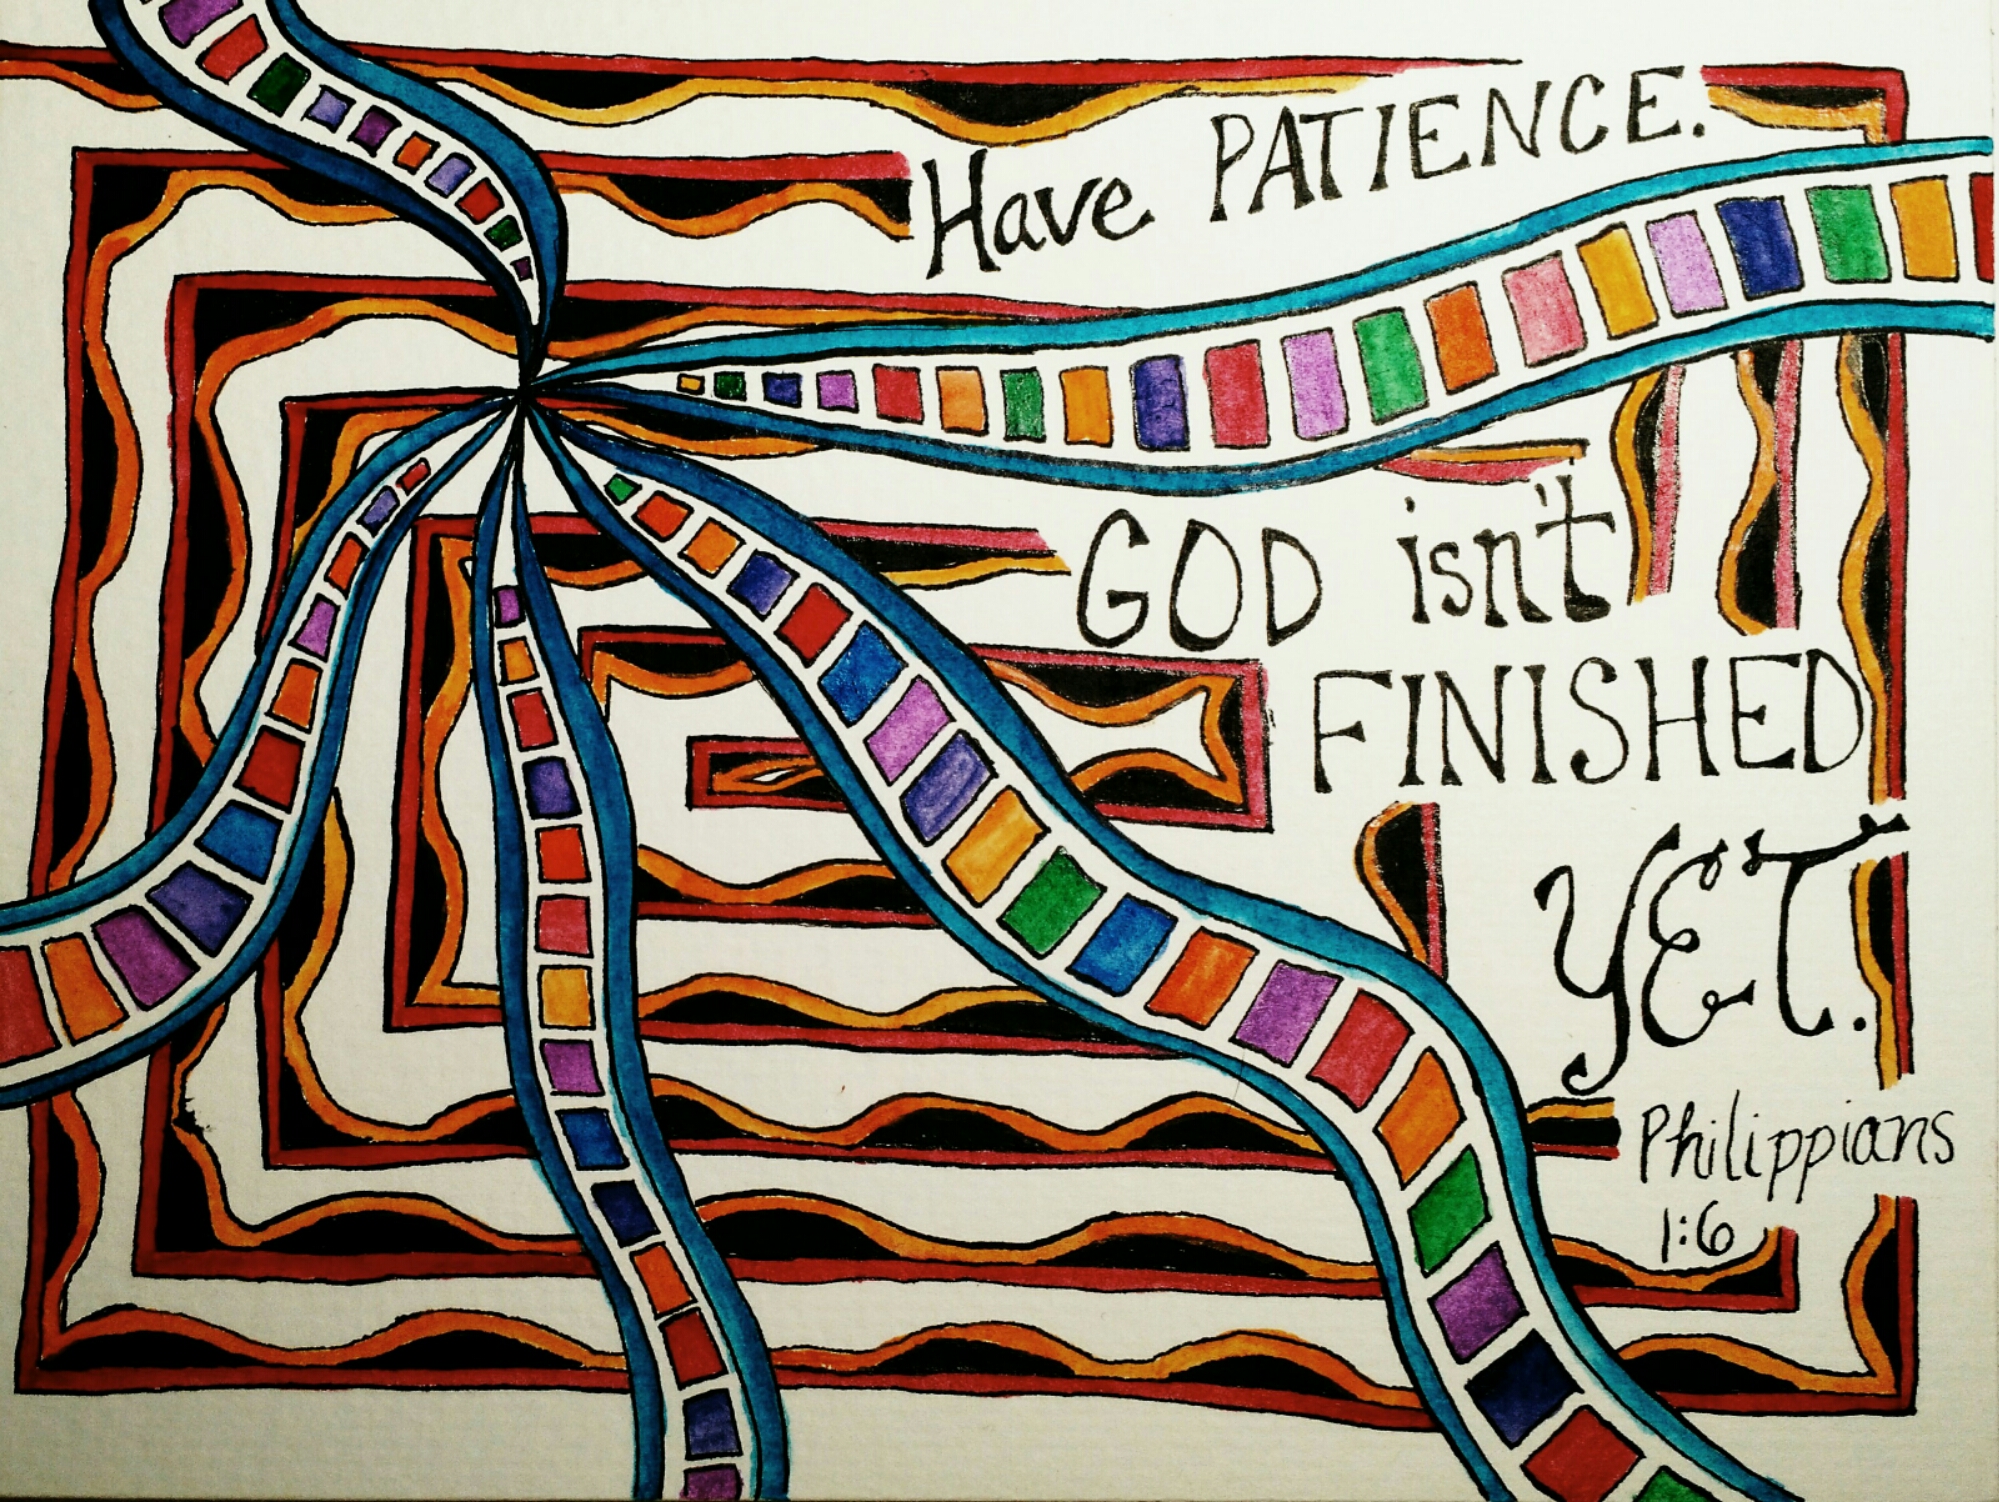 Have PATIENCE.
GOD isn't
FINISHED
YET.
Philippians
1:6